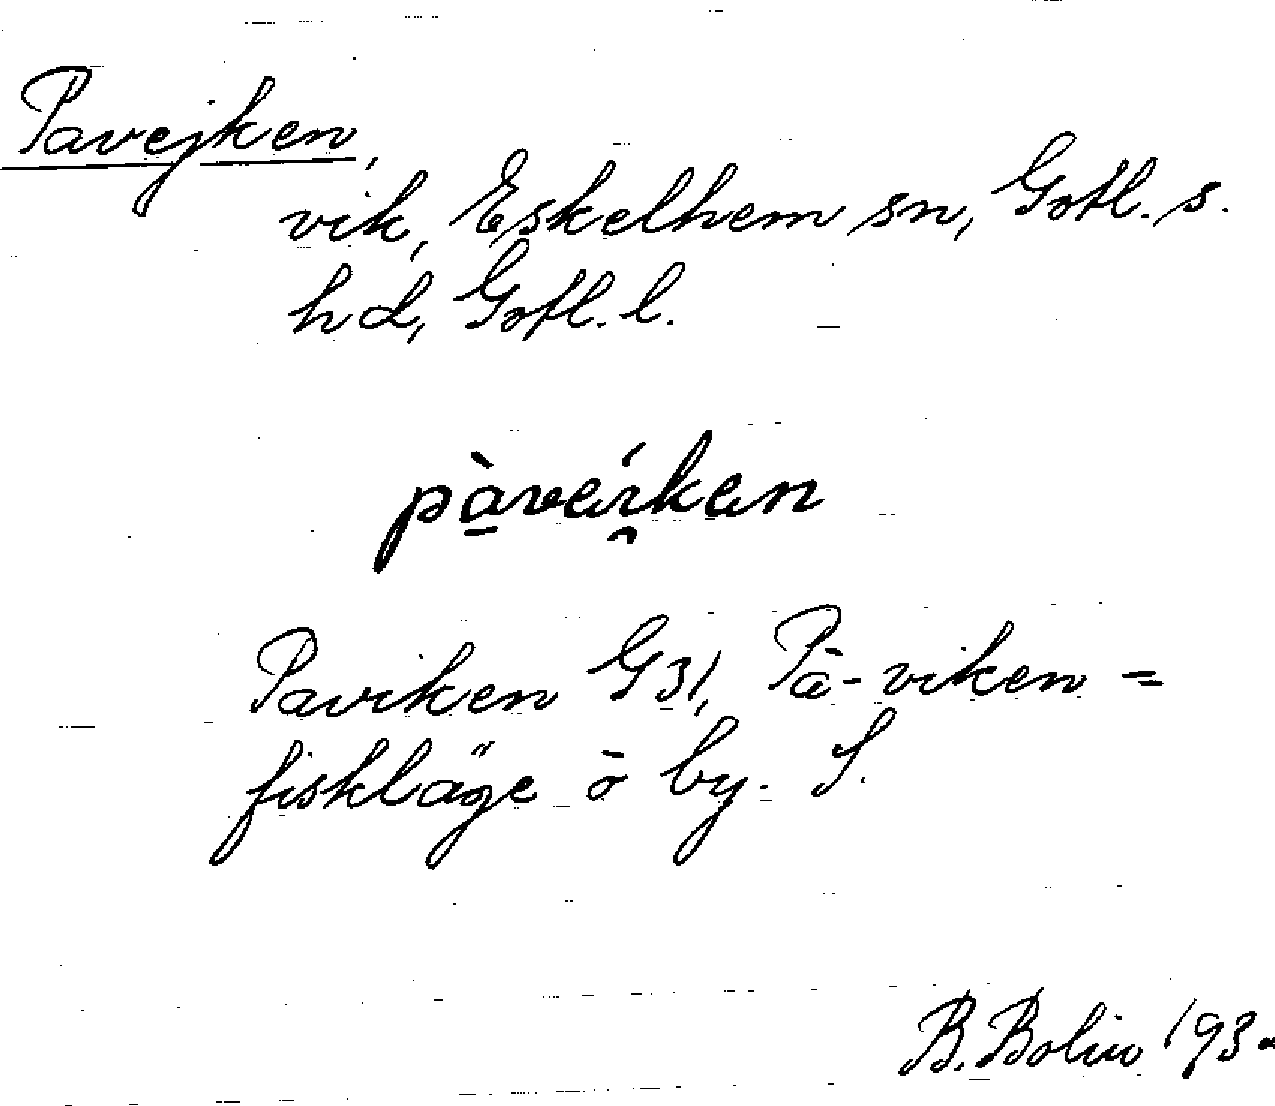 Pavejken,
vik, Eskelhem sn, Gotl. s.
hd, Gotl. l.
pàvei̯ken
Paviken G31, På-viken =
fiskläge o by. S.
B. Bolin 193